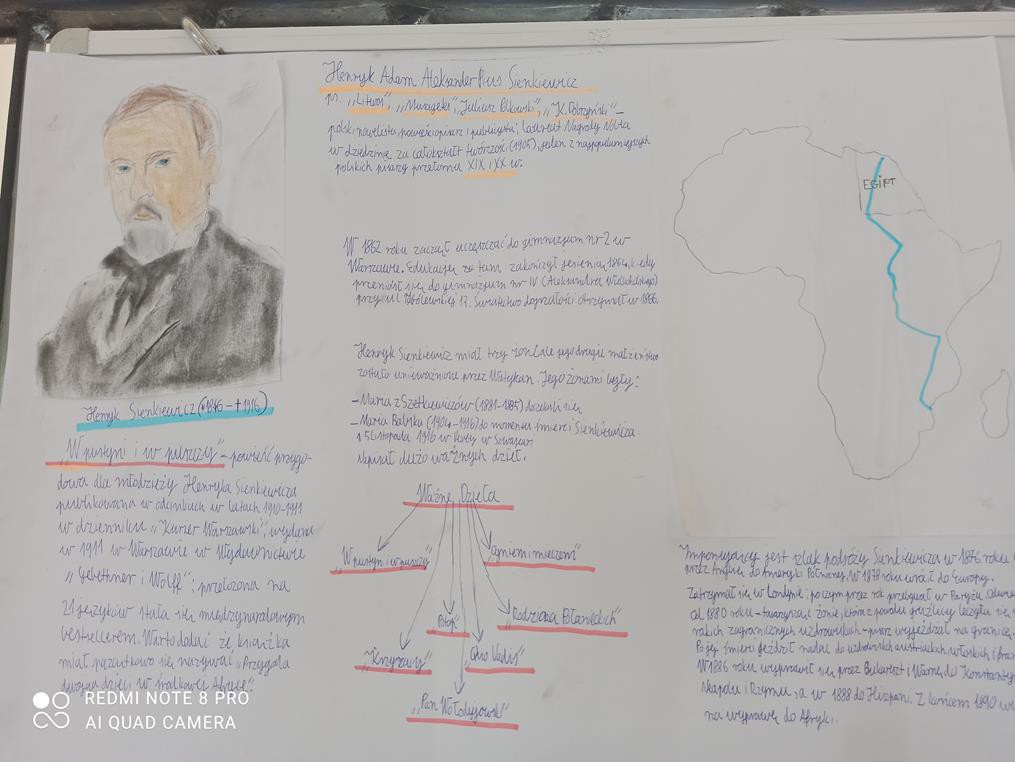 Henryk Adam Aleksander Pius Sienkiewicz
ps. „Litwos", „Musagetes", „Juliusz Polkowski", „K. Dobrzyński" –
polski nowelista powieściopisarz i publicysta; laureat Nagrody Nobla
w dziedzinie za całokształt twórczości (1905), jeden z najpopularniejszych
polskich pisarzy przełomu XIX i XX w.
W 1862 roku zaczął uczęszczać do gimnazjum nr 2 w
Warszawie. Edukację ze tam zakończył jesienią 1864, kiedy
przeniósł się do gimnazjum nr IV (Aleksandra Wielkopolskiego)
przy ul Królewskiej 13. Świadectwo dojrzałości otrzymał w 1866.
Henryk Sienkiewicz miał trzy żony ale jego drugie małżeństwo
zostało unieważnione przez Watykan. Jego żonami były:
– Maria z Szetkiewiczów (1881-1885)
– Maria Babska (1904-1916) do momentu śmierci Sienkiewicza
15 listopada 1916 w Vevey w
Napisał dużo ważnych dzieł.
Ważne Dzieła
„W pustyni i w puszczy"
„Ogniem i mieczem"
„Potop"
„Rodzina Połanieckich"
„Krzyżacy"
„Quo Vadis"
„Pan Wołodyjowski"
Henryk Sienkiewicz (*1846 - +1916)
„W pustyni i w puszczy" – powieść przygo-
dowa dla młodzieży Henryka Sienkiewicza
publikowana w odcinkach w latach 1910-1911
w dzienniku „Kurier Warszawski", wydana
w 1911 w Warszawie w Wydawnictwie
„Gebethner i Wolff"; przełożona na
21 języków stała się międzynarodowym
bestsellerem. Warto dodać że książka
miała początkowo się nazywać „Przygoda
dwojga dzieci w środkowej Afryce".
EGIPT
Imponujący jest szlak podróży Sienkiewicza w 1876 roku
przez Anglię do Ameryki Północnej. W 1878 roku wrócił do Europy.
Zatrzymał się w Londynie; po czym przez rok przebywał w Paryżu,
Od 1880 roku – towarzysząc żonie, która z powodu gruźlicy leczyła się
zagranicznych uzdrowiskach – wyjeżdżał na granicę.
Po jej śmierci jeździł nadal do uzdrowisk austriackich, włoskich i
W 1886 roku wyprawił się przez Bukareszt i Warnę do
Neapolu i Rzymu, a w 1888 do Hiszpani. Z końcem 1890
na wyprawę do Afryki.
REDMI NOTE 8 PRO
AI QUAD CAMERA